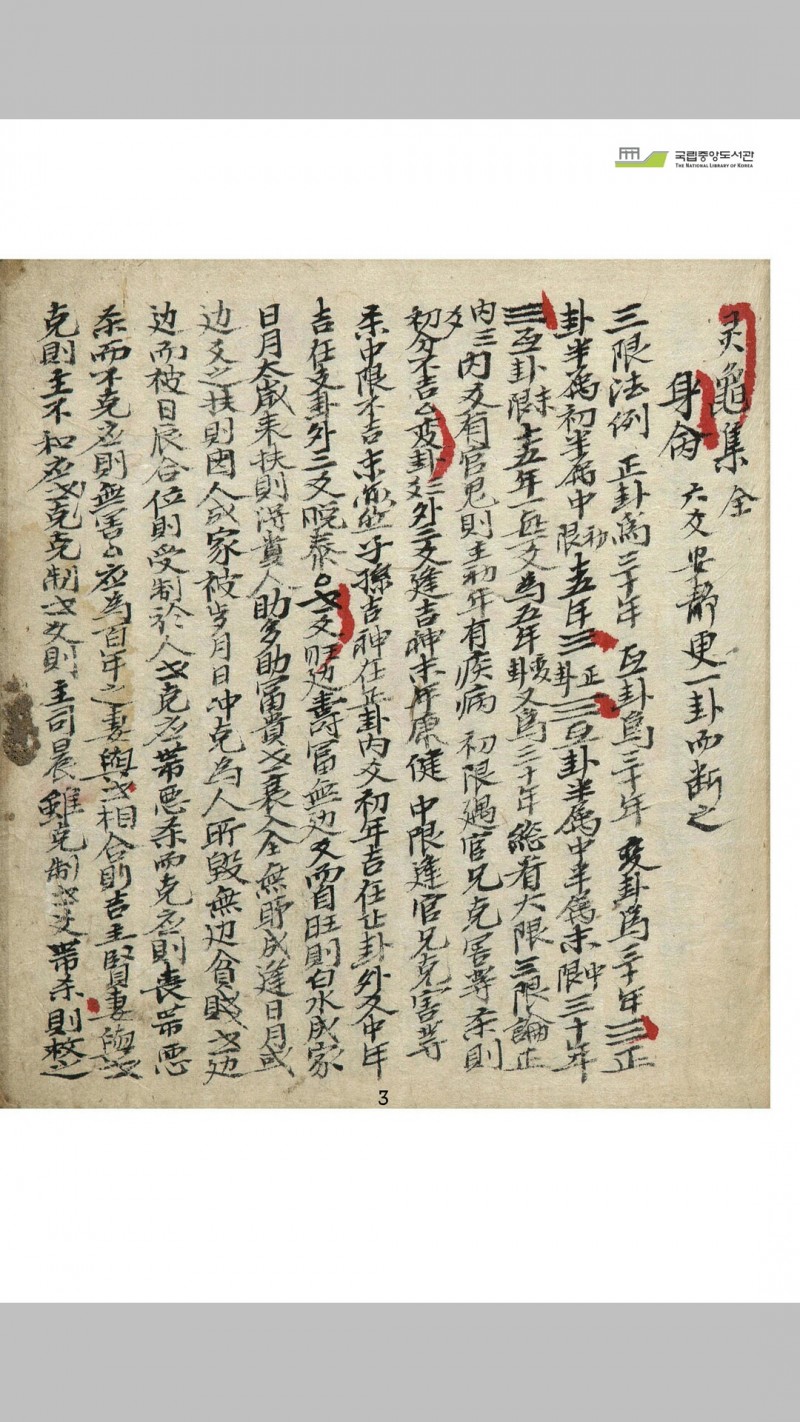 국립중앙도서관
THE NATIONAL LIBRARY OF KOREA
灵龜集 全
身命 六爻安静更一卦而断之
三限法例 正卦爲三十年 互卦爲三十年 变卦爲三十年 三正
卦半爲初半爲中 初限 十五年 三 正卦 三互卦半爲中半爲末 中限 三十年
三互卦 末限 十五年一爻爲五年 变卦 又爲三十年 総看大限三限論正
内三内爻有官鬼則主初年有疾病 初限遇官兄克害等杀則
初分不吉 变卦 外三爻逢吉神末年康健 中限逢官兄克害等
杀中限不吉末 子孫吉神在正卦内爻初年吉在正卦外爻中年
吉在支卦外三爻 泰 世爻旺 壽富無边 又 旺則白水成家
日月太歲来扶則得贵人助多助富贵 世 衰 全無 成逢日月或
边爻之扶則因人成家被岁月日冲克為人所毁無边貧賤世边
边而被日辰合位則受制於人世克应带惡杀而克应則喪 带惡
杀而不克应則無害 应為百年之妻與世相合則吉主賢妻 世
克則主不和应世克克制世爻則主司晨雞克制世爻带杀則 之
3